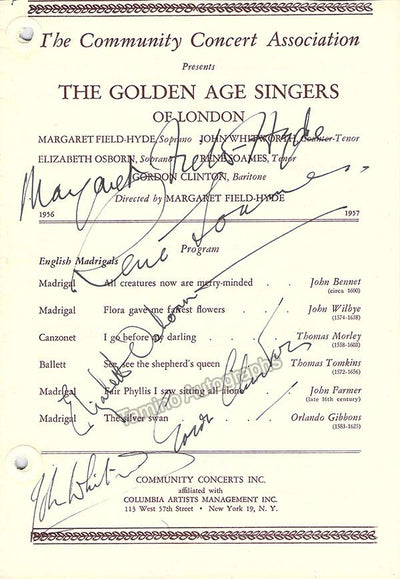 The Community Concert Association
Presents
THE GOLDEN AGE SINGERS
OF LONDON
MARGARET FIELD-HYDE, Soprano JOHN WHITWORTH, Counter-Tenor
ELIZABETH OSBORN, Soprano RENE SOAMES, Tenor
GORDON CLINTON, Baritone
Directed by MARGARET FIELD-HYDE
Margaret Field-Hyde
1956 1957
René Soames
Program
English Madrigals
Madrigal All creatures now are merry-minded John Bennet
(circa 1600)
Madrigal Flora gave me fairest flowers John Wilbye
(1574-1638)
Canzonet I go before my darling Thomas Morley
(1558-1603)
Ballett See, see the shepherd's queen Thomas Tomkins
(1572-1656)
Elizabeth Osborn
Gordon Clinton
Tamino Autographs
Madrigal Fair Phyllis I saw sitting all alone John Farmer
(late 16th century)
Madrigal The silver swan Orlando Gibbons
(1583-1625)
John Whitworth
COMMUNITY CONCERTS INC.
affiliated with
COLUMBIA ARTISTS MANAGEMENT INC.
113 West 57th Street • New York 19, N. Y.